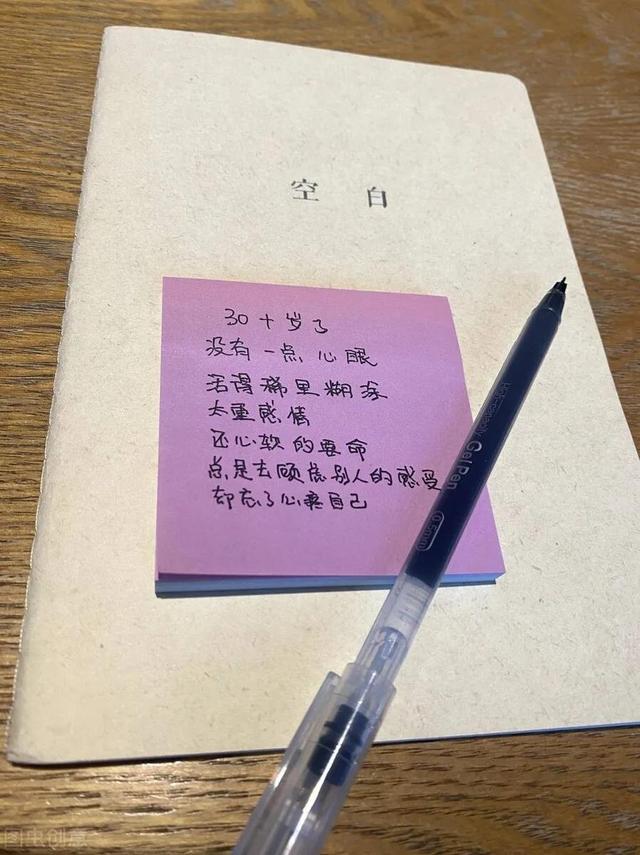 空白
30十岁了
没有一点心眼
活得稀里糊涂
太重感情
还心软的要命
总是去顾虑别人的感受
却忘了心疼自己
GelPen
0.5mm
图虫创意